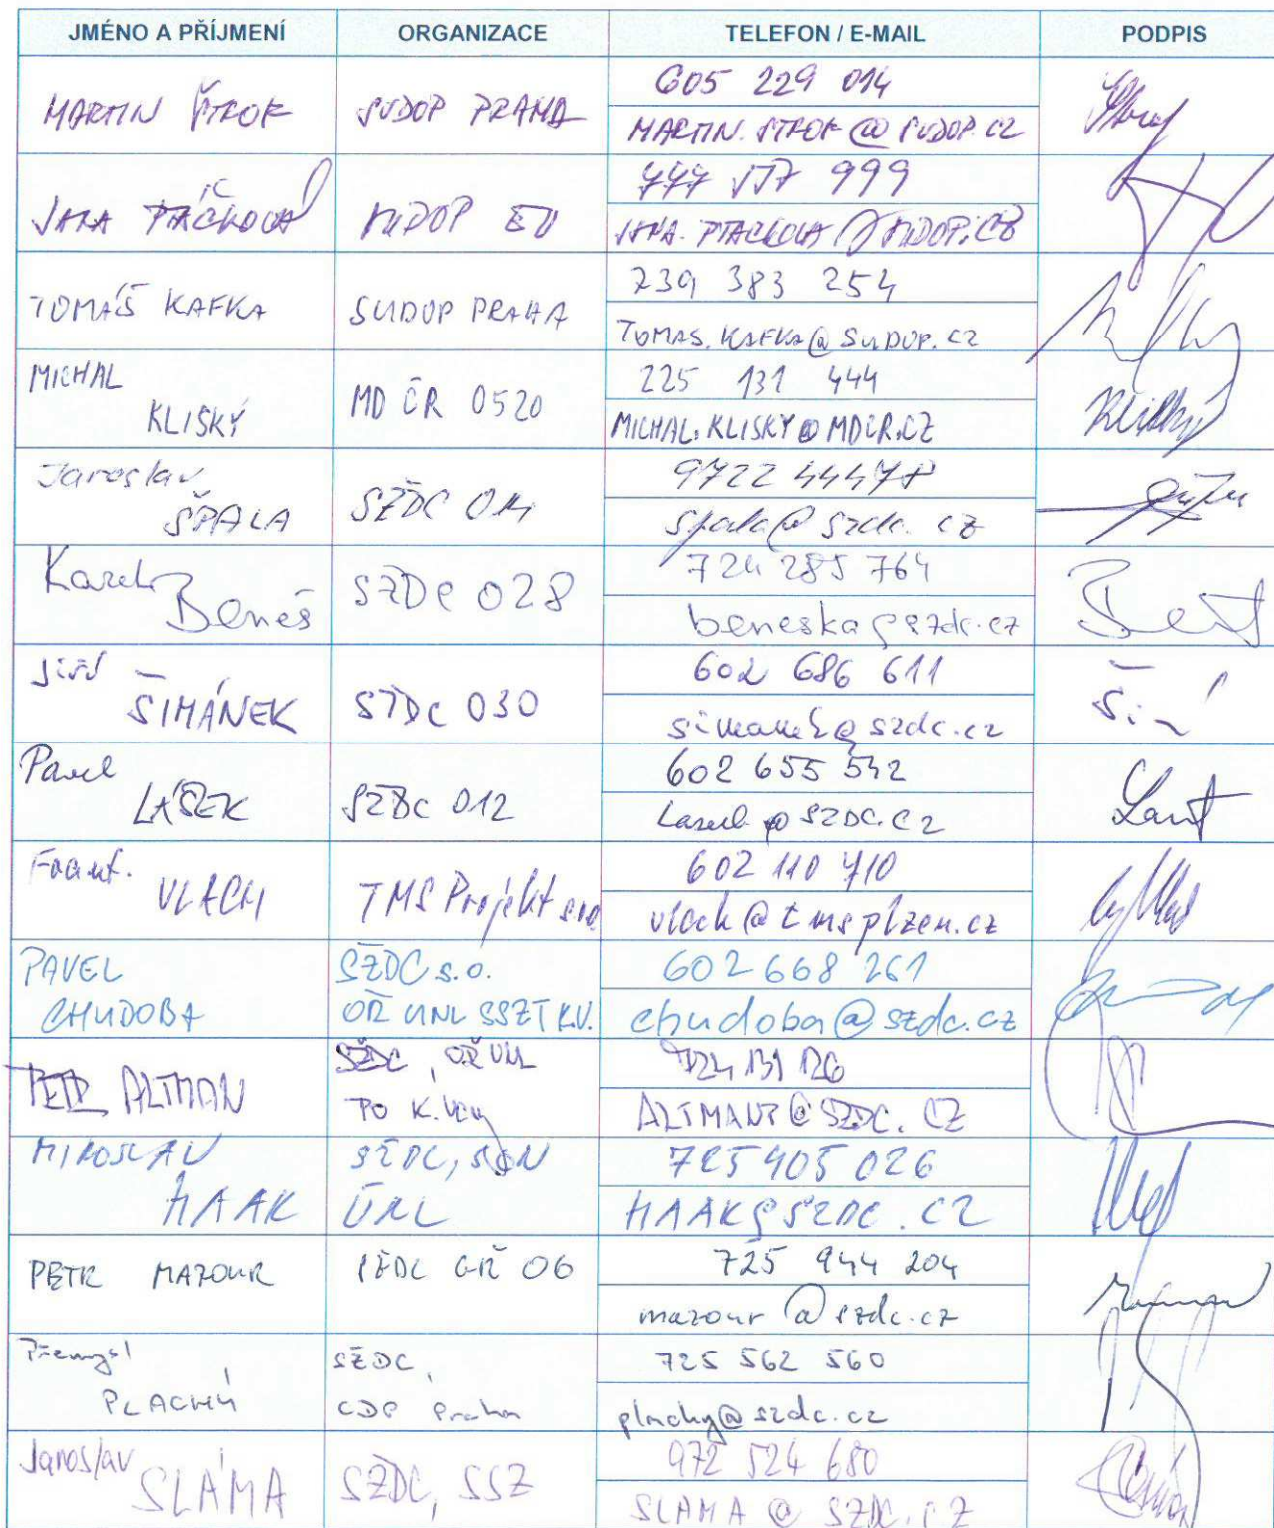 JMÉNO A PŘÍJMENÍ ORGANIZACE TELEFON / E-MAIL PODPIS
MARTIN ŠTROF SUDOP PRAHA
605 229 014
MARTIN.STROF@SUDOP.CZ
JANA PTÁČKOVÁ SUDOP EU
777 577 999
JANA.PTACKOVA@SUDOP.CZ
TOMÁŠ KAFKA SUDOP PRAHA
739 383 254
TOMAS.KAFKA@SUDOP.CZ
MICHAL
KLISKÝ MD ČR 0520
225 131 444
MICHAL.KLISKY@MDCR.CZ
Jaroslav
ŠPALA SŽDC O14
9722 44478
spala@szdc.cz
Karel
Beneš SŽDC O28
724 285 764
beneska@szdc.cz
Jiří
ŠIMÁNEK SŽDC O30
602 686 611
simanek@szdc.cz
Pavel
LÁSEK SŽDC O12
602 655 542
Lasek@SZDC.CZ
Frant.
VLACH TMS Projekt s.r.o
602 110 710
vlach@tmsplzen.cz
PAVEL SŽDC s.o.
CHUDOBA OŘ UNL SSZT K.V.
602 668 261
chudoba@szdc.cz
PETR ALTMAN SŽDC, OŘ UNL
PO K.Vary
724 131 126
ALTMANP@SZDC.CZ
MIROSLAV SŽDC, SON
HAAK ÚNL
725 905 026
HAAK@SZDC.CZ
PETR MAZOUR SŽDC GŘ O6
725 944 204
mazour@szdc.cz
Přemysl SŽDC,
PLACHÝ CDP Praha
725 562 560
plachy@szdc.cz
Jaroslav
SLÁMA SŽDC, SSZ
972 524 680
SLAMA@SZDC.CZ